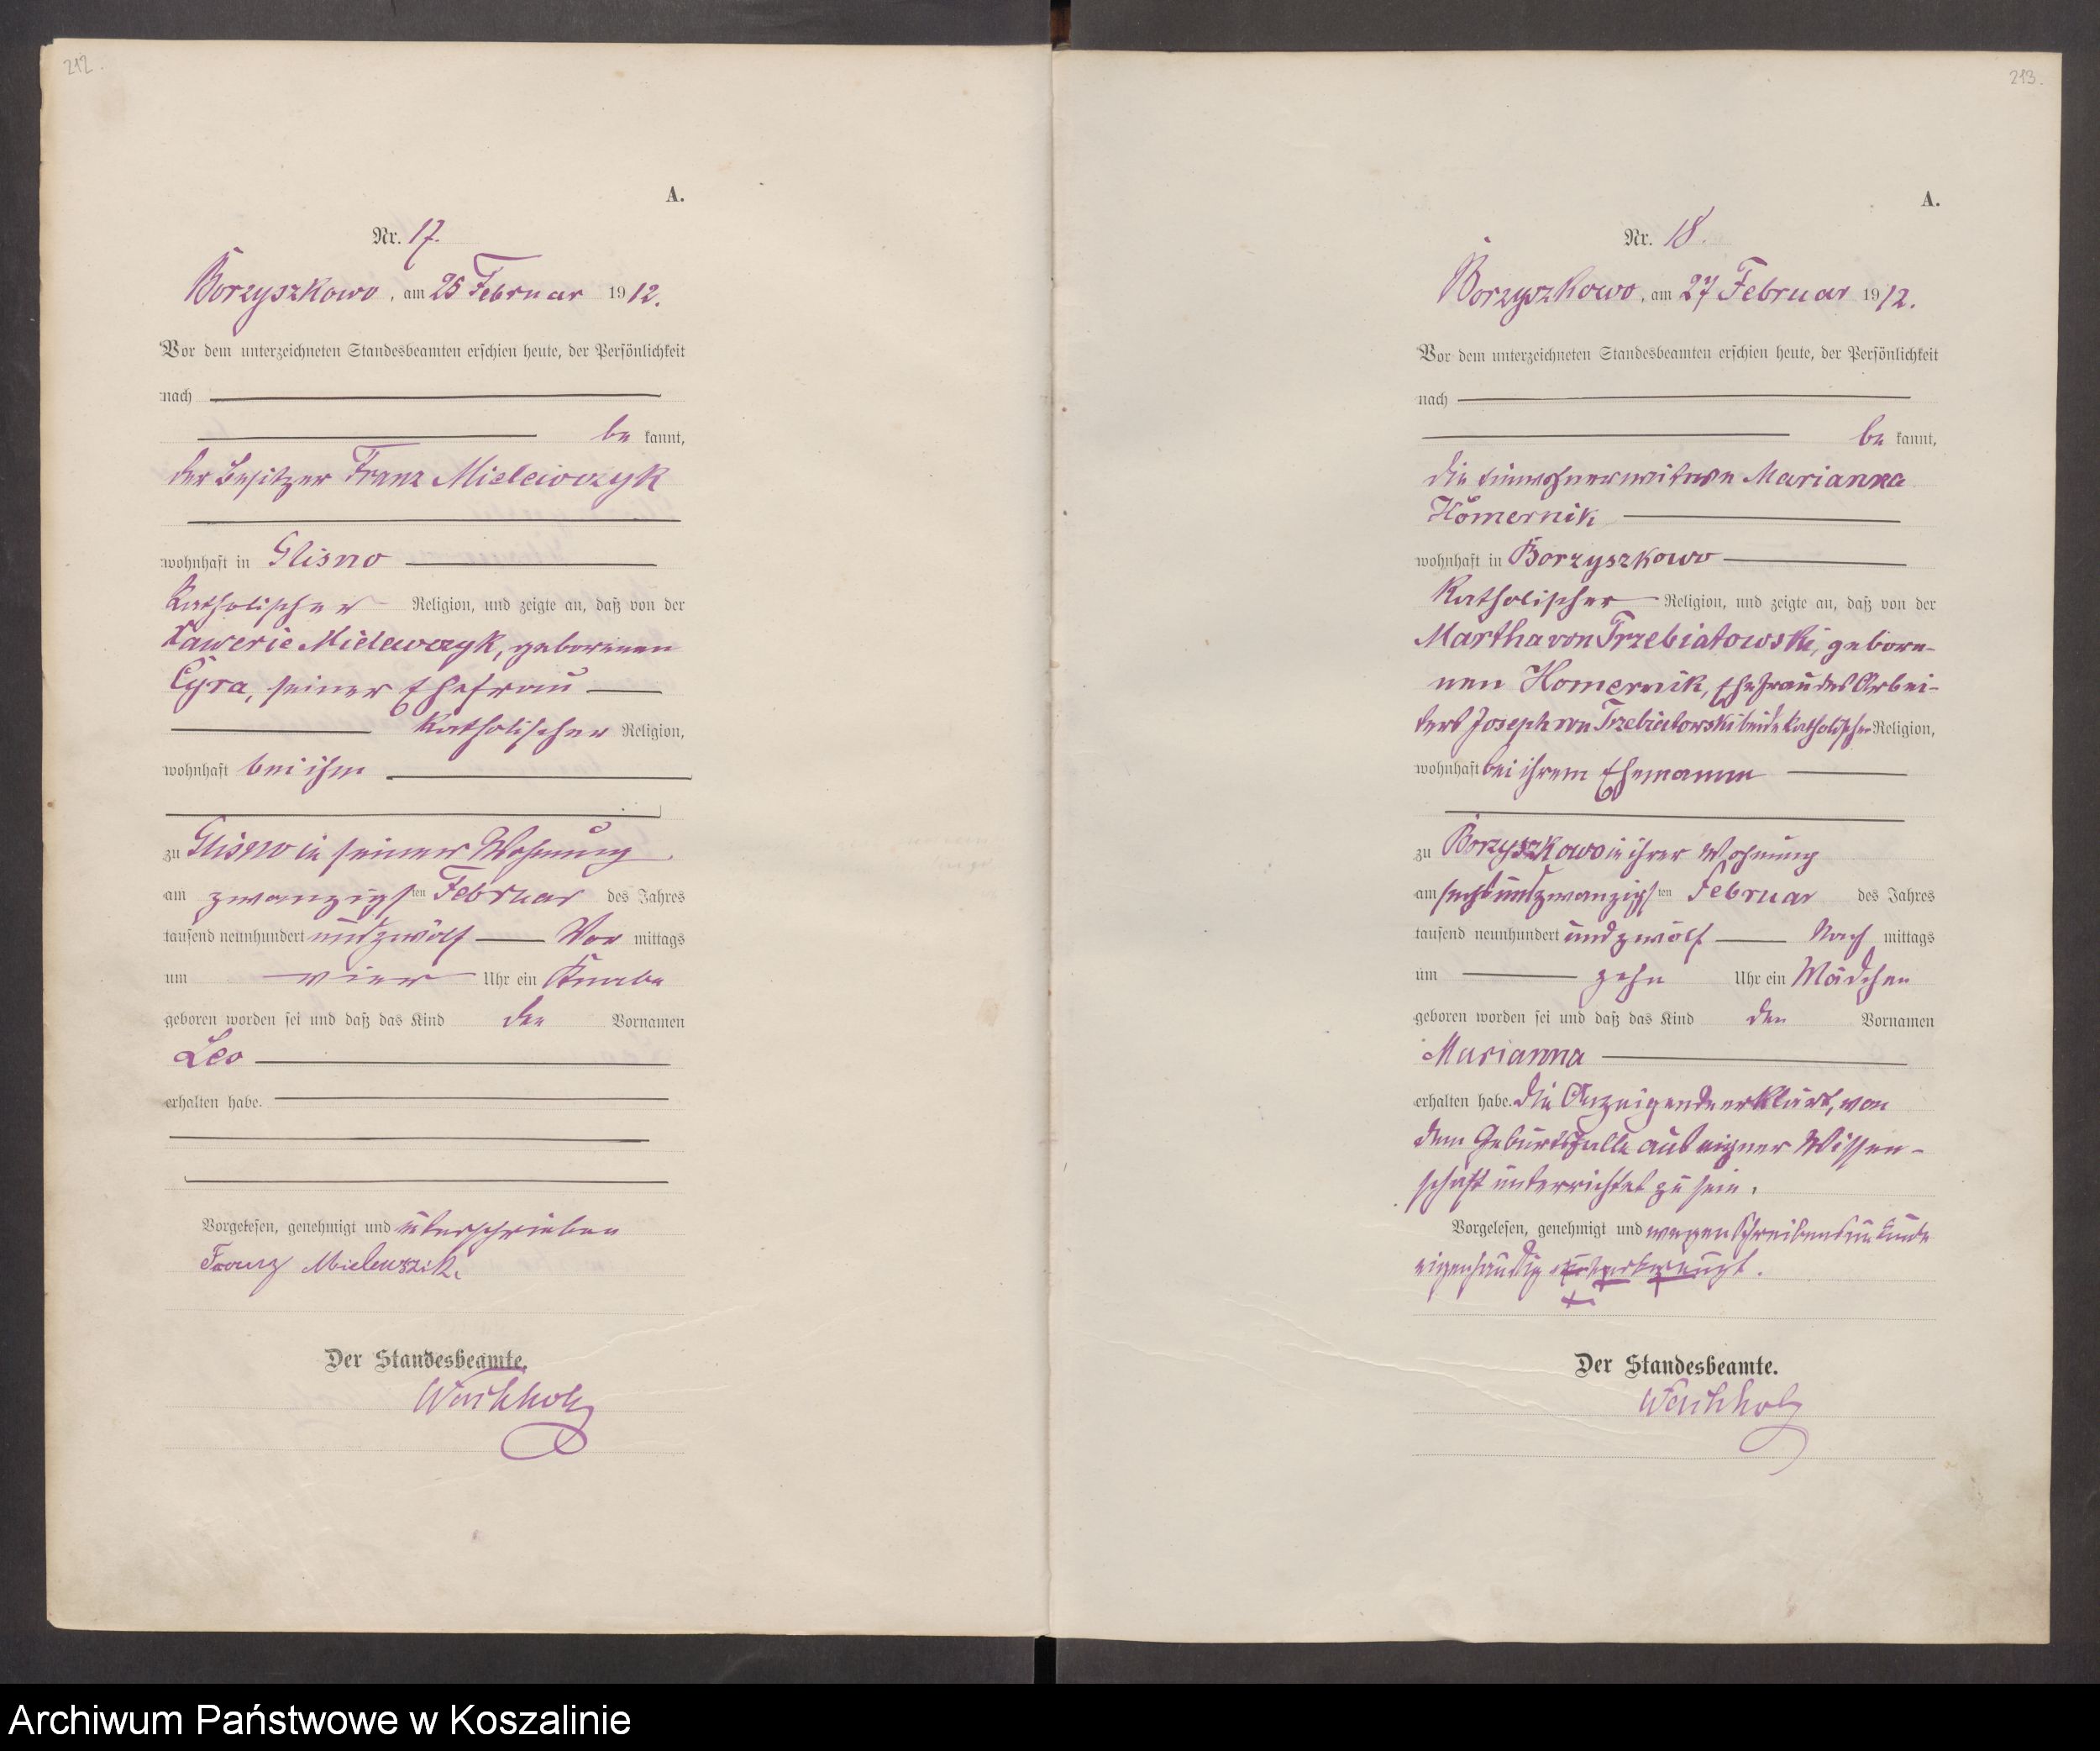 212.
A.
Nr. 17.
Borzyszkowo, am 25 Februar 1912.
Vor dem unterzeichneten Standesbeamten erschien heute, der Persönlichkeit
nach
be kannt,
der Besitzer Franz Mielewczyk
wohnhaft in Glisno
katholischer Religion, und zeigte an, daß von der
Xawerie Mielewczyk, geborenen
Cyra, seiner Ehefrau
katholischer Religion,
wohnhaft bei ihm
zu Glisno in seiner Wohnung
am zwanzigsten Februar des Jahres
tausend neunhundert und zwölf Vor mittags
um vier Uhr ein Knabe
geboren worden sei und daß das Kind den Vornamen
Leo
erhalten habe.
Vorgelesen, genehmigt und unterschrieben
Franz Mielewszik.
Der Standesbeamte.
213.
A.
Nr. 18.
Borzyszkowo, am 27 Februar 1912.
Vor dem unterzeichneten Standesbeamten erschien heute, der Persönlichkeit
nach
be kannt,
die Einwohnerwitwe Marianna
Homernik
wohnhaft in Borzyszkowo
katholischer Religion, und zeigte an, daß von der
Martha von Trzebiatowski, gebore-
nen Homernik, Ehefrau des Arbei-
ters Joseph von Trzebiatowski beide katholischer Religion,
wohnhaft bei ihrem Ehemanne
zu Borzyszkowo in ihrer Wohnung
am sechsundzwanzigsten Februar des Jahres
tausend neunhundert und zwölf Nach mittags
um zehn Uhr ein Mädchen
geboren worden sei und daß das Kind den Vornamen
Marianna
erhalten habe. Die Anzeigende erklärt, von
dem Geburtsfalle aus eigner Wissen-
schaft unterrichtet zu sein.
Vorgelesen, genehmigt und wegen Schreibensunkunde
eigenhändig unterkreuzt.
Der Standesbeamte.
Archiwum Państwowe w Koszalinie